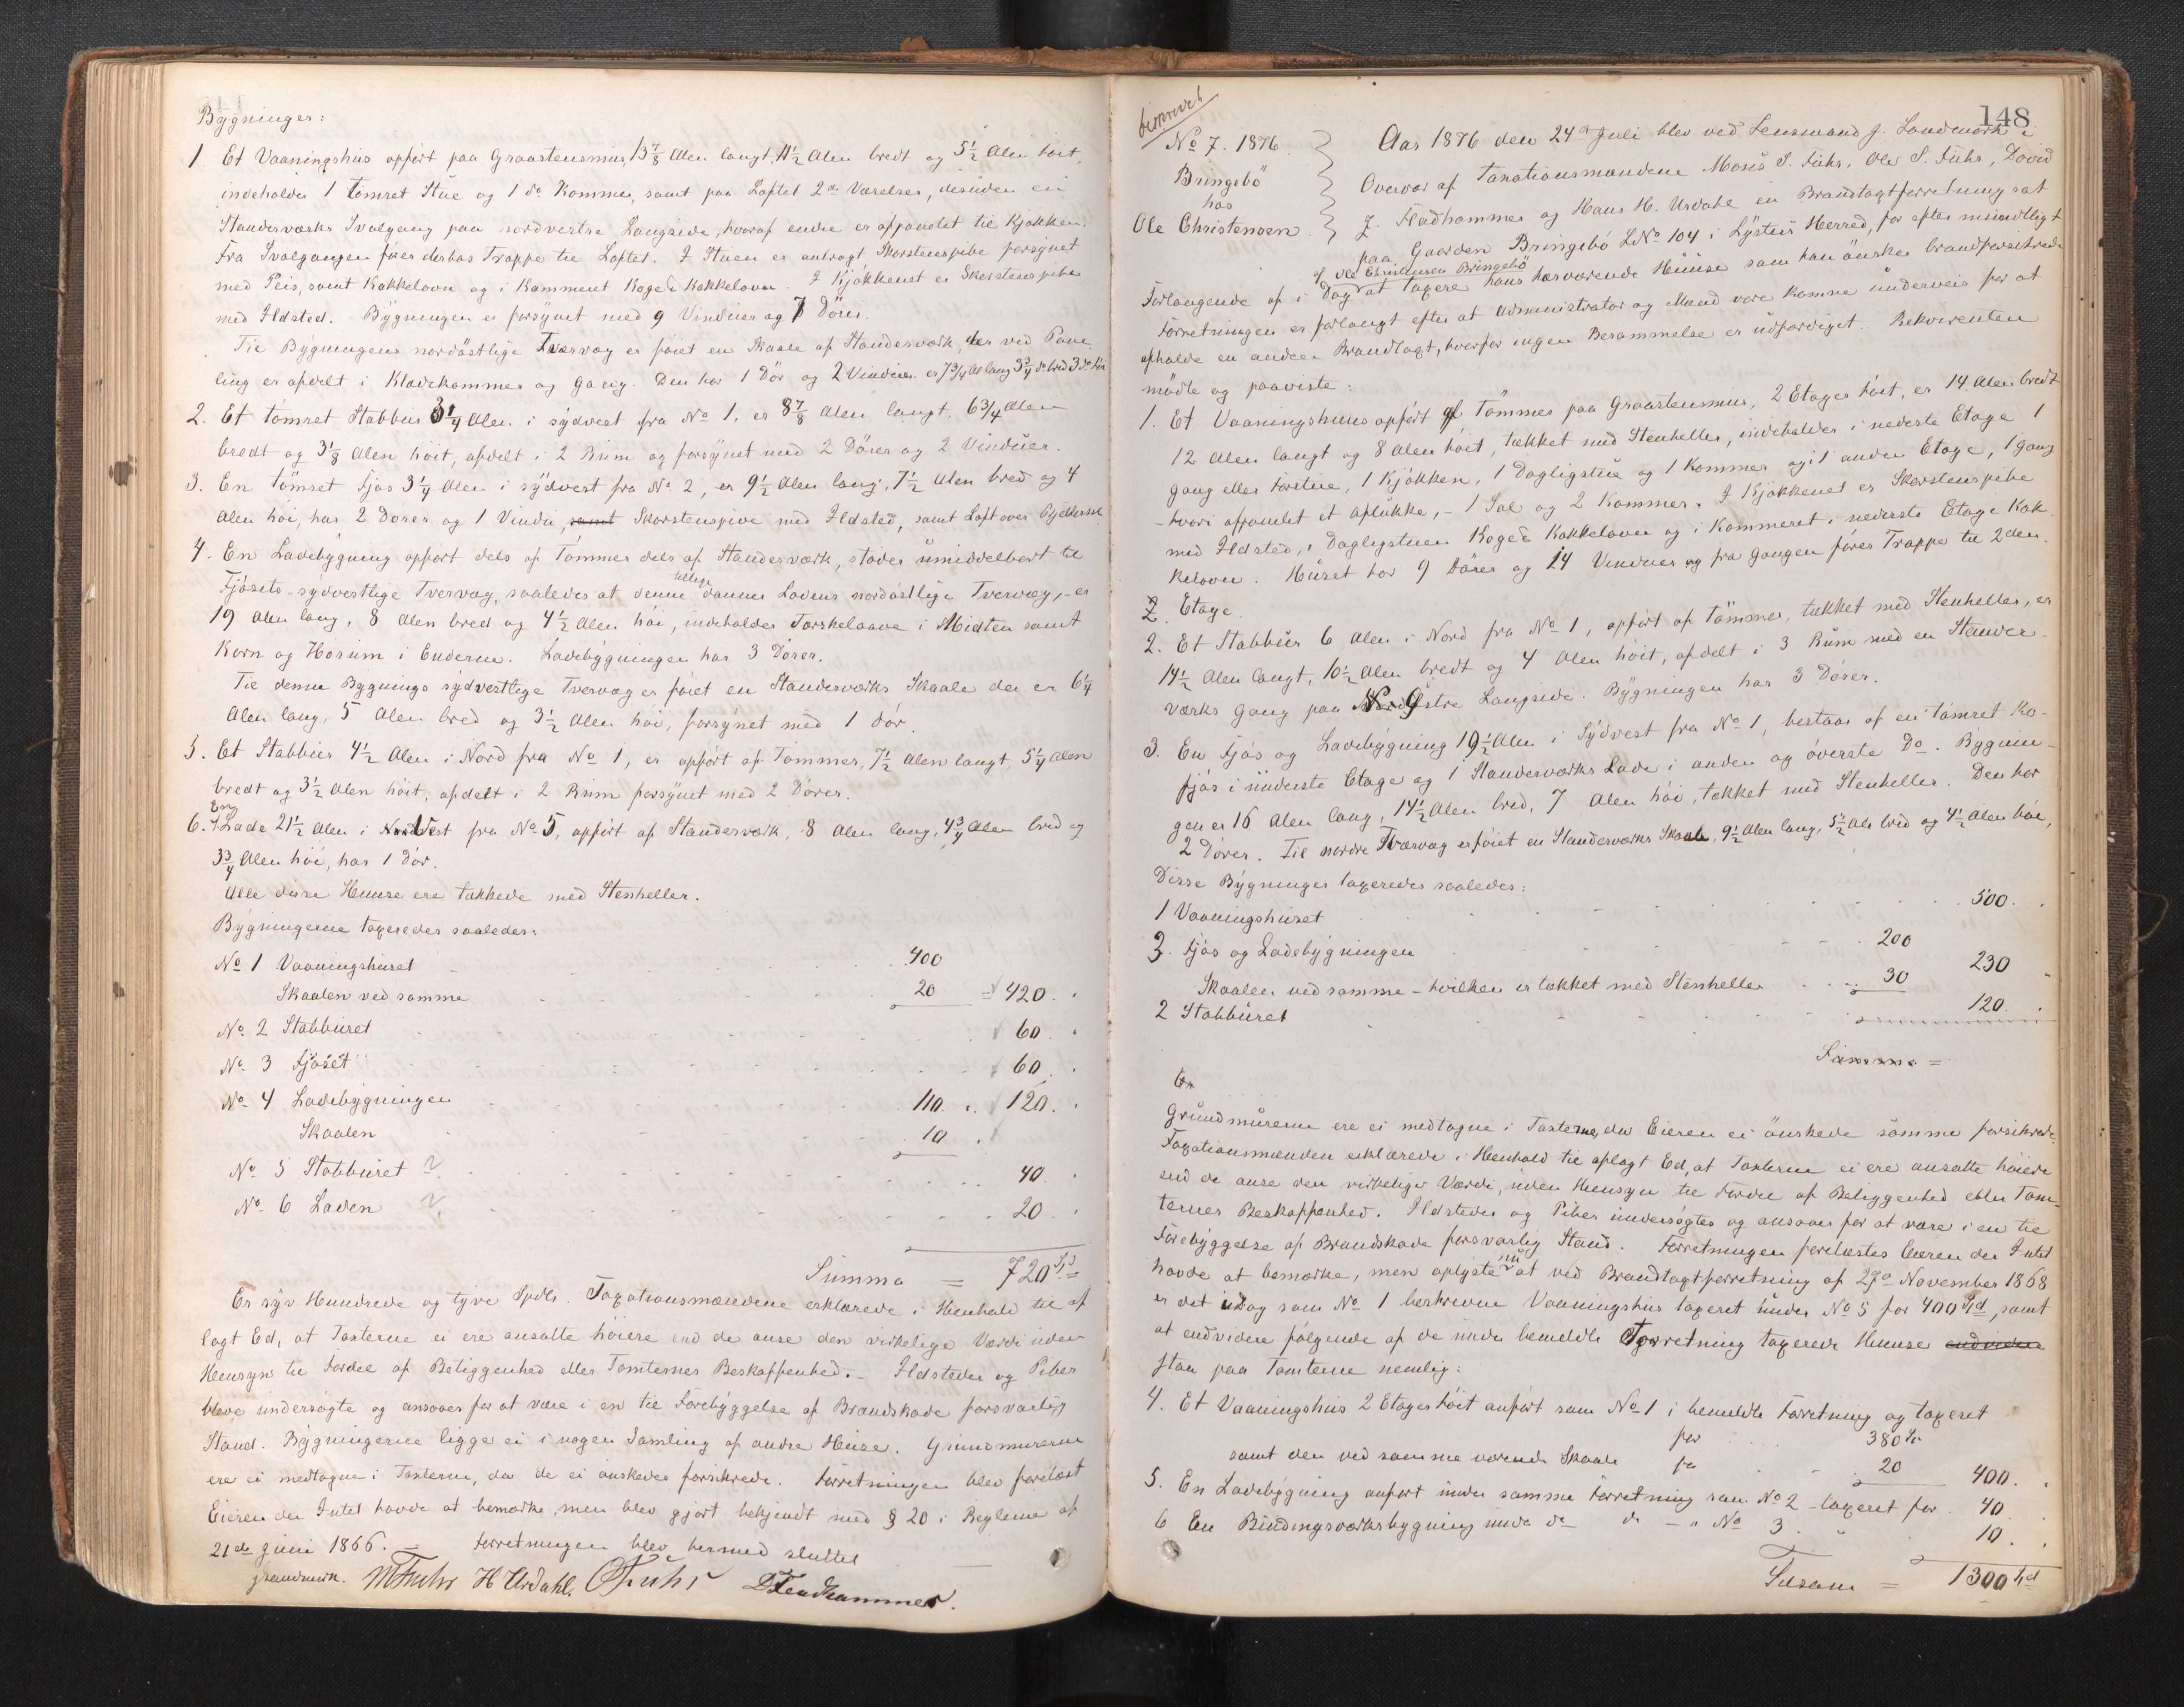 Bygninger:
1. Et Vaaningshus opført paa Graastensmur, 13 7/8 Alen langt, 11 1/2 Alen bredt og 5 1/2 Alen høit,
indeholder 1 tømret Stue og 1 do Kammer, samt paa Loftet 2 do Værelser, desuden en
Standerværks Svalgang paa nordvestre Langside, hvoraf endre er afpanelet til Kjøkken.
Fra Svalgangen føres derhos Trappe til Loftet. I Stuen er anbragt Skorstenspibe forsynet
med Peis, samt Kakkelovn og i Kammeret Koge & Kakkelovn. I Kjøkkenet er Skorstenspibe
med Ildsted. Bygningen er forsynet med 9 Vinduer og 7 Dører.
Til Bygningens nordøstlige Tværvæg er føiet en Skaale af Standerværk, der ved Pane-
ling er afdelt i Klædekammer og Gang. Den har 1 Dør og 2 Vinduer. er 7 3/4 Al lang 3 3/4 do bred 3 do høi
2. Et tømret Stabbur 3 1/4 Alen i sydvest fra No 1, er 8 7/8 Alen langt, 6 3/4 Alen
bredt og 3 1/8 Alen høit, afdelt i 2 Rum og forsynet med 2 Dører og 2 Vinduer.
3. En tømret Fjøs 3 1/4 Alen i sydvest fra No 2, er 9 1/2 Alen lang, 7 1/2 Alen bred og 4
Alen høi, har 2 Dører og 1 Vindu, samt Skorstenspive med Ildsted, samt Loft over Bjelkerne
4. En Ladebygning opført dels af Tømmer dels af Standerværk, støder umiddelbart til
Fjøsets sydvestlige Tvervæg, saaledes at denne tillige danner Ladens nordøstlige Tvervæg, - er
19 Alen lang, 8 Alen bred og 4 1/2 Alen høi, indeholder Tærskelaave i Midten samt
Korn og Hørum i Enderne. Ladebygningen har 3 Dører.
Til denne Bygnings sydvestlige Tvervæg er føiet en Standerværks Skaale der er 6 1/4
Alen lang, 5 Alen bred og 3 1/2 Alen høi, forsynet med 1 Dør.
5. Et Stabbur 4 1/2 Alen i Nord fra No 1, er opført af Tømmer, 7 1/2 Alen langt, 5 1/4 Alen
bredt og 3 1/2 Alen høit, afdelt i 2 Rum forsynet med 2 Dører.
6. En Lade 21 1/2 Alen i Vest fra No 5, opført af Standerværk, 8 Alen lang, 4 3/4 Alen bred og
3 3/4 Alen høi, har 1 Dør.
Alle disse Huuse ere tækkede med Stenheller.
Bygningerne taxeredes saaledes:
No 1 Vaaningshuset 400
Skaalen ved samme 20 = 420.
No 2 Stabburet 60.
No 3 Fjøset 60.
No 4 Ladebygningen 110. 120.
Skaalen 10.
No 5 Stabburet 40.
No 6 Laden 20.
Summa = 720 Spd
Er syv Hundrede og tyve Spdlr. Taxationsmændene erklærede i Henhold til af-
lagt Ed, at Taxterne ei ere ansatte høiere end de anse den virkelige Værdi uden
Hensyn til Fordel af Beliggenhed eller Tomternes Beskaffenhed. - Ildsteder og Piber
bleve undersøgte og ansaaes for at være i en til Forebyggelse af Brandskade forsvarlig
Stand. Bygningerne ligge ei i nogen Samling af andre Huse. Grundmurerne
ere ei medtagne i Taxterne, da de ei ønskedes forsikrede. Forretningen blev forelæst
Eieren der Intet havde at bemærke, men blev gjort bekjendt med § 20 i Reglem. af
21de Juni 1866. = Forretningen blev hermed sluttet
JLandmark. MFuhr H Urdahl. OFuhr DFladhammer.
148
beskrevet
No 7. 1876.
Bringebø
hos
Ole Christensen.
Aar 1876 den 24de Juli blev ved Lensmand J. Landmark i
Overvær af Taxationsmændene Mons S. Fuhr, Ole S. Fuhr, David
J. Fladhammer og Hans H. Urdahl en Brandtaxtforretning sat
paa Gaarden Bringebø LNo 104 i Lysters Herred, for efter mundtligt
Forlangende af i Dag af Ole Christensen Bringebø at taxere hans hærværende Huuse som han ønsker brandforsikrede
Forretningen er forlangt efter at Administrator og Mænd vare komne underveis for at
afholde en anden Brandtaxt, hvorfor ingen Berammelse er udfærdiget. Rekvirenten
mødte og paaviste:
1. Et Vaaningshuus opført af Tømmer paa Graastensmur, 2 Etager høit, er 14 Alen bredt
12 Alen langt og 8 Alen høit, tækket med Stenheller, indeholder i nederste Etage 1
Gang eller Forstue, 1 Kjøkken, 1 Dagligstue og 1 Kammer og i 1 anden Etage, 1 Gang
- hvori afpanelet et Aflukke, - 1 Sal og 2 Kammer. I Kjøkkenet er Skorstenspibe
med Ildsted, i Dagligstuen Koge & Kakkelovn og i Kammeret i nederste Etage Kak-
kelovn. Huset har 9 Dører og 14 Vinduer og fra Gangen føres Trappe til 2den
Etage.
2. Et Stabbur 6 Alen i Nord fra No 1, opført af Tømmer, tækket med Stenheller, er
14 1/2 Alen langt, 10 1/2 Alen bredt og 4 Alen høit, afdelt i 3 Rum med en Stander-
værks Gang paa østre Langside. Bygningen har 3 Dører.
3. En Fjøs og Ladebygning 19 1/2 Alen i Sydvest fra No 1, bestaar af en tømret Ko-
fjøs i underste Etage og 1 Standerværks Lade i anden og øverste Do. Bygnin-
gen er 16 Alen lang, 14 1/2 Alen bred, 7 Alen høi, tækket med Stenheller. Den har
2 Dører. Til nordre Tværvæg er føiet en Standerværks Skaale, 9 1/2 Alen lang, 5 1/2 Ale bred og 4 1/2 Alen høi,
Disse Bygninger taxeredes saaledes:
1 Vaaningshuset 500.
3. Fjøs og Ladebygningen 200
Skaalen ved samme - hvilken er tækket med Stenheller 30 230
2 Stabburet 120.
Summa =
Er
Grundmurene ere ei medtagne i Taxterne, da Eieren ei ønskede samme forsikrede.
Taxationsmænden erklærede i Henhold til aflagt Ed, at Taxterne ei ere ansatte høiere
end de anse den virkelige Værdi, uden Hensyn til Fordel af Beliggenhed eller Tom-
ternes Beskaffenhed. Ildsteder og Piber undersøgtes og ansaaes for at være i en til
Forebyggelse af Brandskade forsvarlig Stand. Forretningen forelæstes Eieren der Intet
havde at bemærke, men oplyste nu at ved Brandtaxtforretning af 27de November 1868
er det idag som No 1 beskrevne Vaaningshus taxeret under No 5 for 400 Spd, samt
at endvidere følgende af de under bemeldte Forretning taxerede Huuse endvidere
staa paa Tomterne nemlig:
4. Et Vaaningshus 2 Etager høit anført som No 1 i bemeldte Forretning og taxeret
for 380 Sp
samt den ved samme værende Skaale for 20 400.
5. En Ladebygning anført under samme Forretning som No 2 - taxeret for 40.
6 En Bindingsværksbygning under do do - " No 3. " 10.
Tilsam = 1300 Spd